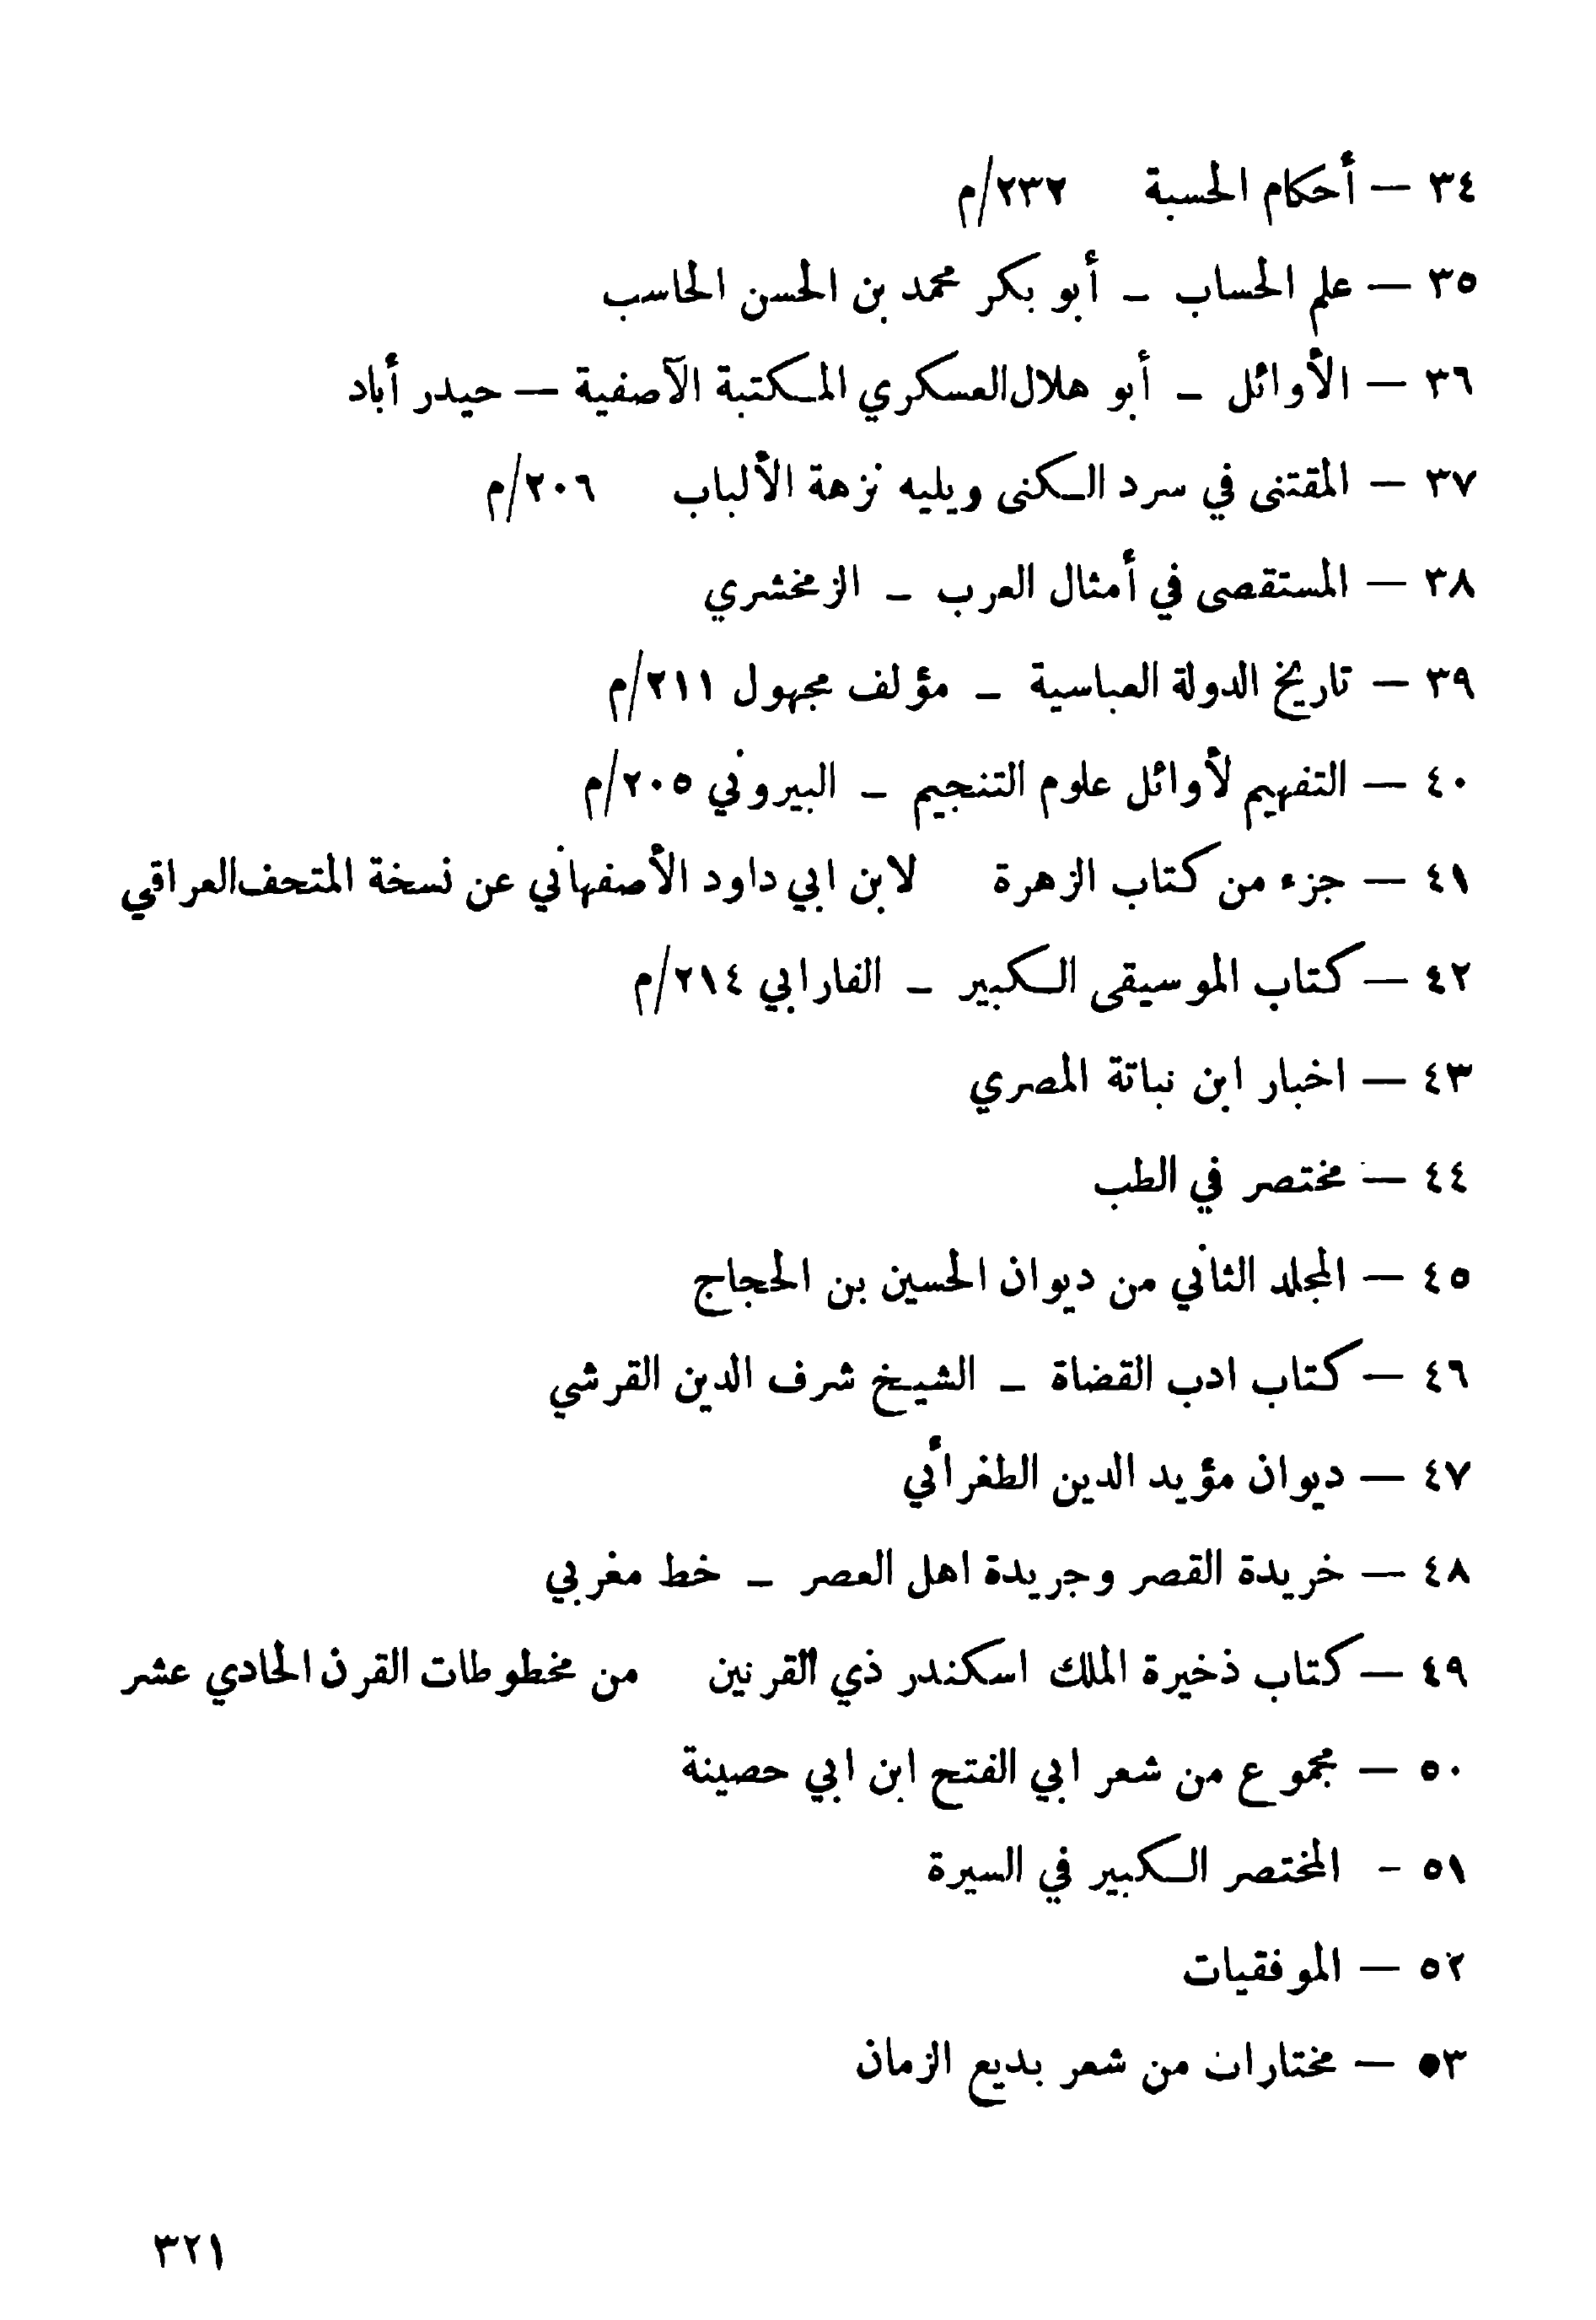 ٣٤ — أحكام الحسبة ٢٣٢/م
٣٥ — علم الحساب – أبو بكر محمد بن الحسن الحاسب
٣٦ — الأوائل – أبو هلال العسكري المكتبة الآصفية — حيدر أباد
٣٧ — المقتنى في سرد الكنى ويليه نزهة الألباب ٢٠٦/م
٣٨ — المستقصى في أمثال العرب – الزمخشري
٣٩ — تاريخ الدولة العباسية – مؤلف مجهول ٢١١/م
٤٠ — التفهيم لأوائل علوم التنجيم – البيروني ٢٠٥/م
٤١ — جزء من كتاب الزهرة لابن ابي داود الأصفهاني عن نسخة المتحف العراقي
٤٢ — كتاب الموسيقى الكبير – الفارابي ٢١٤/م
٤٣ — اخبار ابن نباتة المصري
٤٤ — مختصر في الطب
٤٥ — المجلد الثاني من ديوان الحسين بن الحجاج
٤٦ — كتاب ادب القضاة – الشيخ شرف الدين القرشي
٤٧ — ديوان مؤيد الدين الطغرائي
٤٨ — خريدة القصر وجريدة اهل العصر – خط مغربي
٤٩ — كتاب ذخيرة الملك اسكندر ذي القرنين من مخطوطات القرن الحادي عشر
٥٠ — مجموع من شعر ابي الفتح ابن ابي حصينة
٥١ - المختصر الكبير في السيرة
٥٢ — الموفقيات
٥٣ — مختارات من شعر بديع الزمان
٣٢١